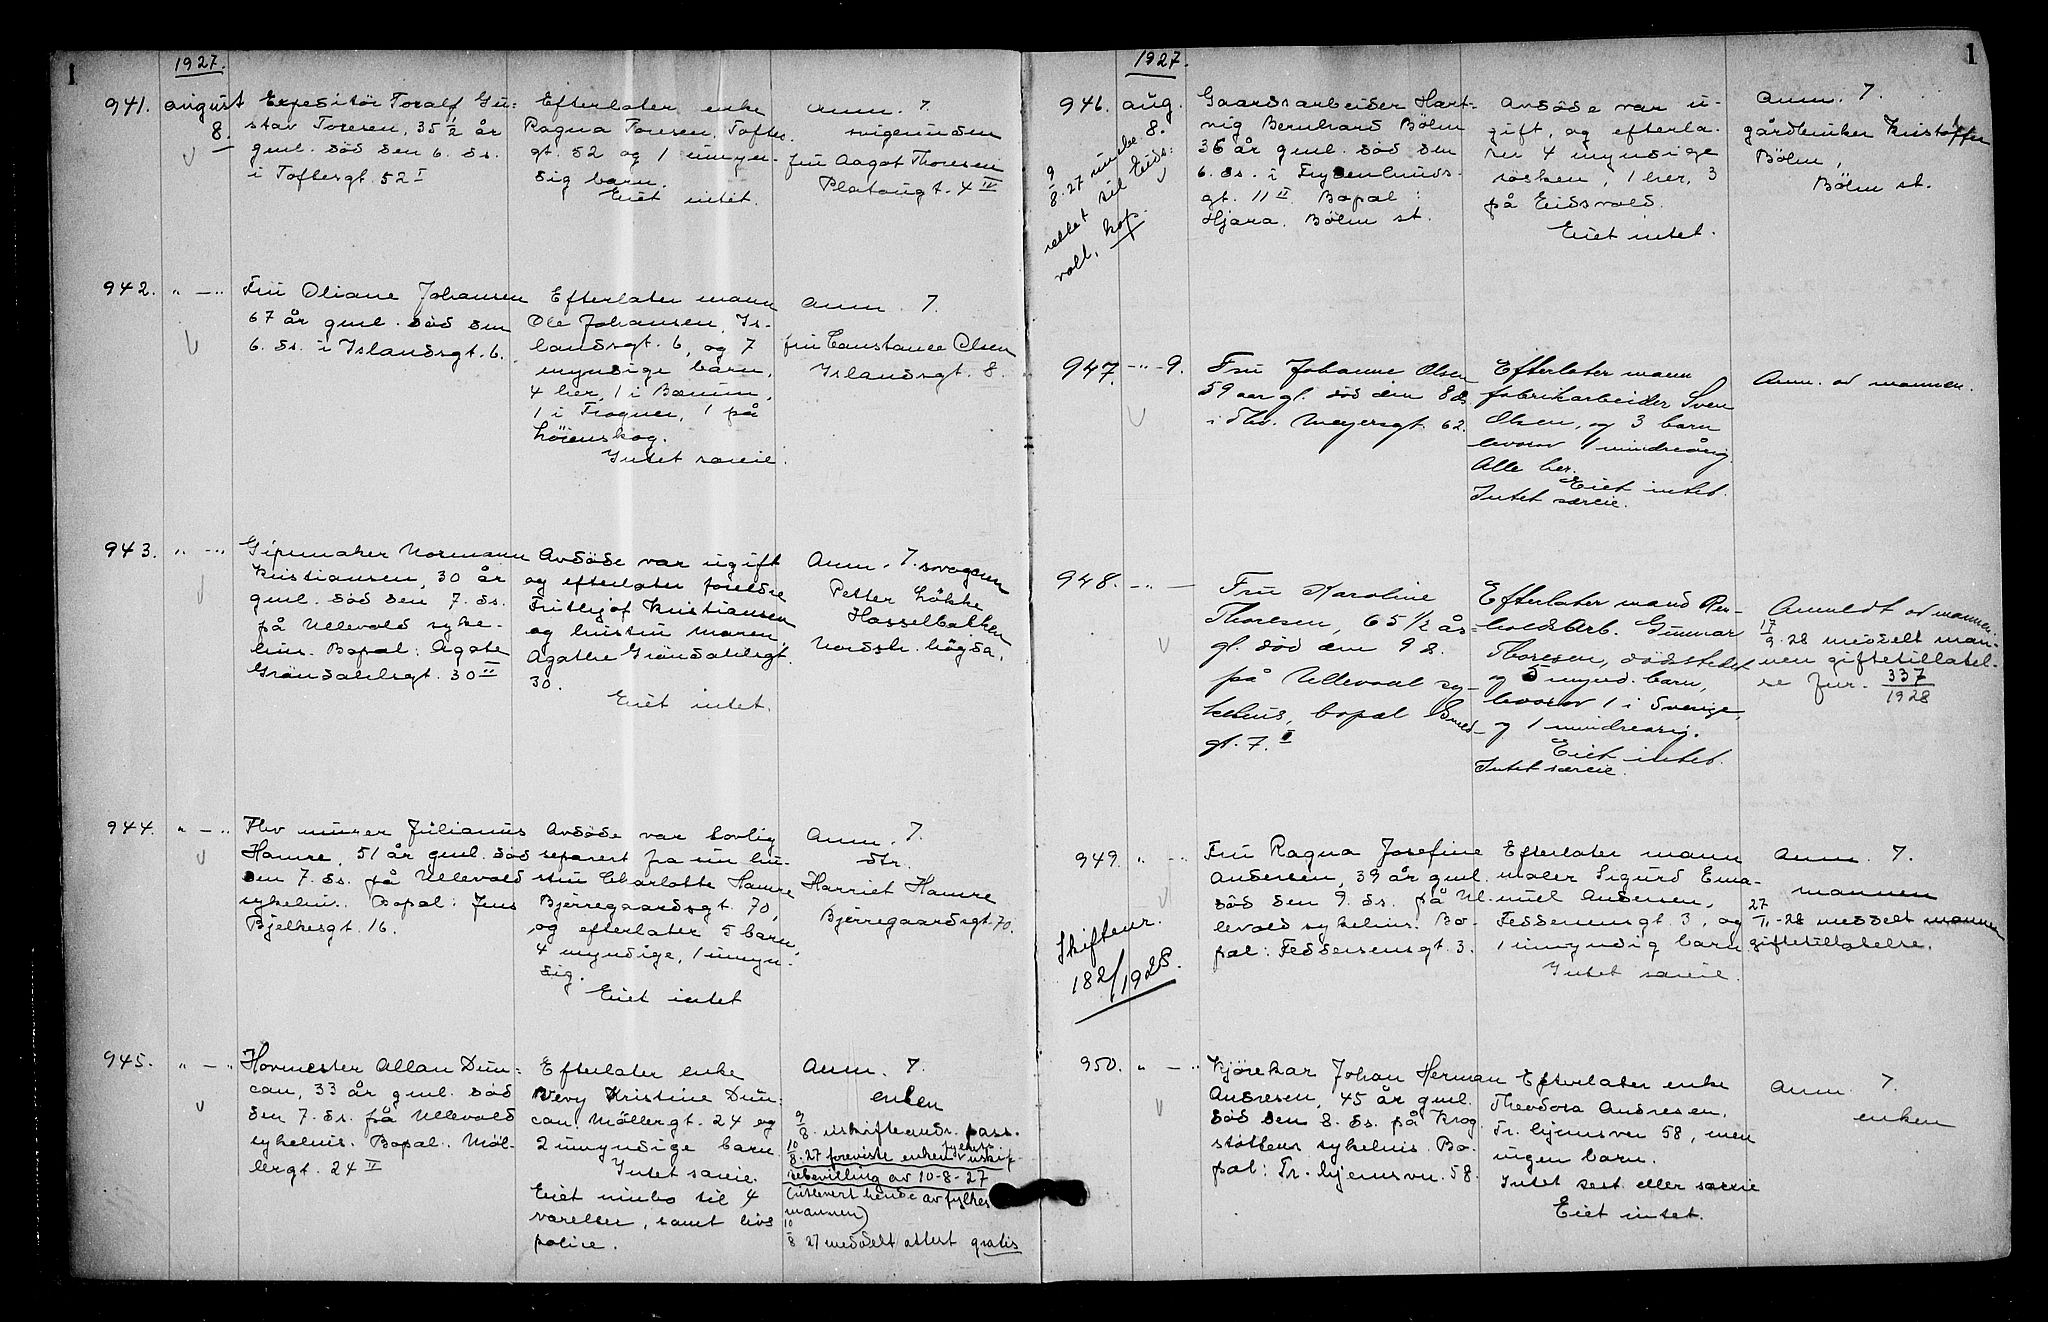 1
1927.
941. august 8.
Expeditör Toralf Gu-
stav Toresen, 35 1/2 år
gml. död den 6. ds.
i Toftesgt. 52 I
Efterlater enke
Ragna Toresen, Toftes
gt. 52 og 1 umyn-
dig barn.
Eiet intet.
Anm. 7.
svigerinden
fru Aagot Thoresen
Platougt. 4 IV
942. " — "
Fru Oliane Johansen
67 år gml. död den
6. ds. i Islandsgt. 6.
Efterlater mann
Ole Johansen, Is-
landsgt. 6, og 7
myndige barn,
4 her, 1 i Bærum,
1 i Trogner, 1 på
Löienskog.
Intet særeie.
Anm. 7.
fru Constance Olsen
Islandsgt. 8.
943. " — "
Gipsmaker Normann
Kristiansen, 30 år
gml. död den 7. ds.
på Ullevold syke-
hus. Bopal: Agate
Gröndahlsgt. 30 II
Avdöde var ugift
og efterlater foreldre
Frithjof Kristiansen
og hustru Maren,
Agathe Gröndahlsgt.
30.
Eiet intet.
Anm. 7. svogeren
Petter Lökke
Hasselbakken
Nordstr. högda.
944. " — "
Fhv murer Julianus
Hamre, 51 år gml. död
den 7. ds. på Ullevold
sykehus. Bopal: Jens
Bjelkesgt. 16.
Avdöde var lovlig
separert fra sin hu-
stru Charlotte Hamre
Bjerregaardsgt. 70,
og efterlater 5 barn,
4 myndige, 1 umyn-
dig.
Eiet intet
Anm. 7.
dtr.
Harriet Hamre
Bjerregaardsgt. 70.
945. " — "
Hovmester Allan Dun-
can, 33 år gml. död
den 7. ds. på Ullevold
sykehus. Bopal: Möl-
lergt. 24 V
Efterlater enke
Vevy Kristine Dun-
can, Möllergt. 24 og
2 umyndige barn
Intet særeie.
Eiet innbo til 4
værelser, samt livs
police.
Anm. 7.
enken
9/8. uskifteandr. pass.
10/8. 27 foreviste enken fylkets uskif-
tebevilling av 10-8-27
(utlevert hende av fylkes
mannen)
10/8 27 meddelt attest gratis
1
1927.
946. aug. 8.
9/8. 27 underrettet til Eids-
voll, kop.
Gaardsarbeider Hart-
vig Bernhard Bölm
36 år gml. död den
6. ds. i Frydenlunds-
gt. 11 II. Bopal:
Hjara. Bölm st.
Avdöde var u-
gift, og efterla-
ter 4 myndige
søsken, 1 her, 3
på Eidsvold.
Eiet intet.
Anm. 7.
gårdbruker Kristoffer
Bölm,
Bölm st.
947. - " - 9.
Fru Johanne Olsen
59 aar gl. död den 8 ds
i Thv. Meyersgt. 62.
Efterlater mann
fabrikarbeider Sven
Olsen, og 3 barn
hvorav 1 mindreårig.
Alle her.
Eiet intet.
Intet særeie.
Anm. av mannen.
948. - " -
Fru Karoline
Thoresen, 65 1/2 år
gl. död den 9 ds.
på Ullevaal sy-
kehus, bopæl Smed-
gt. 7. I
Efterlater mand Ren-
holdsarb. Gunnar
Thoresen, dödstedet
og 5 mynd. barn,
hvorav 1 i Sverige,
og 1 mindreårig.
Eiet intet.
Intet særeie.
Anmeldt av mannen.
17/9. 28 meddelt man-
nen giftetillatel-
se Jur. 337/1928
949. " — "
Skifteur.
182/1928.
Fru Ragna Josefine
Andersen, 39 år gml.
död den 9. ds. på Ul-
levold sykehus. Bo-
pal: Feddersensgt. 3.
Efterlater mann
maler Sigurd Ema-
nuel Andersen,
Feddersensgt 3, og
1 umyndig barn
Intet særeie.
Anm. 7.
mannen
27/11-28 meddelt mannen
giftetillatelse.
950. " — "
Kjörekar Johan Herman
Andresen, 45 år gml.
död den 8. ds. på Krog
stöttens sykehus. Bo-
pal: Tr. hjemsvn. 58.
Efterlater enke
Theodora Andresen.
Tr. hjemsvei 58, men
ingen barn.
Intet test. eller særeie
Eiet intet.
Anm. 7.
enken